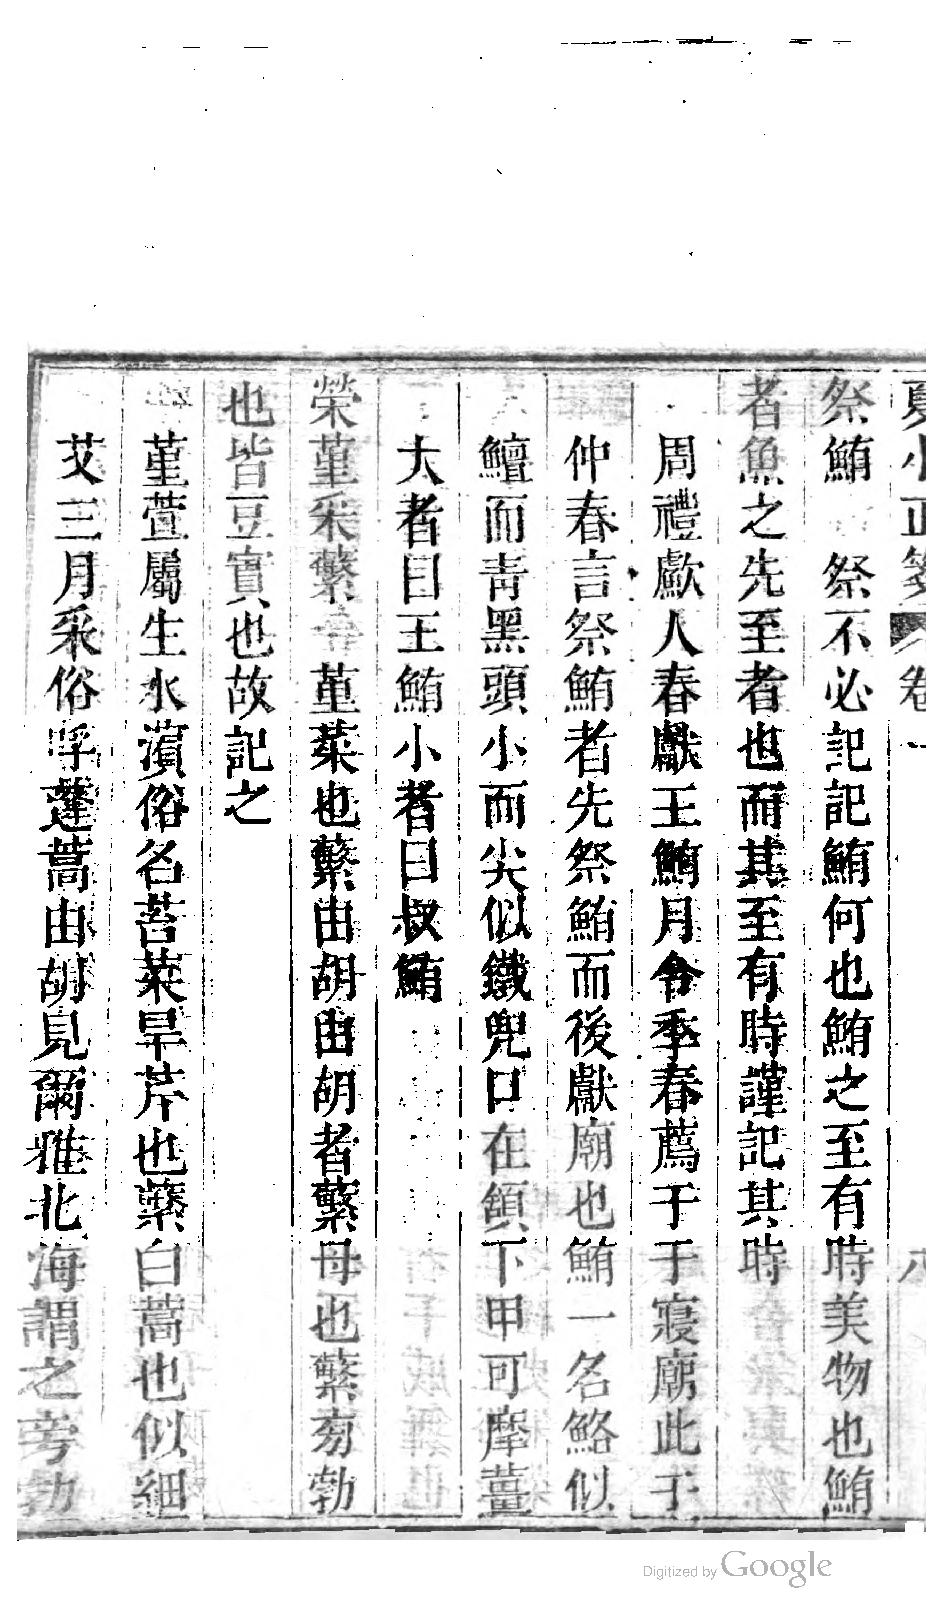 夏小正箋 卷一 八
祭鮪 祭不必記記鮪何也鮪之至有時美物也鮪
者魚之先至者也而其至有時謹記其時
周禮䱷人春獻王鮪月令季春薦于于寢廟此于
仲春言祭鮪者先祭鮪而後獻廟也鮪一名鮥似
鱣而青黑頭小而尖似鐵兜口在頷下甲可摩薑
大者曰王鮪小者曰叔鮪
榮菫采蘩 菫菜也蘩由胡由胡者蘩母也蘩㫄勃
也皆豆實也故記之
菫萱屬生水濱俗名苔菜旱芹也蘩白蒿也似細
艾三月采俗呼蓬蒿由胡見爾雅北海謂之旁勃
Digitized by Google